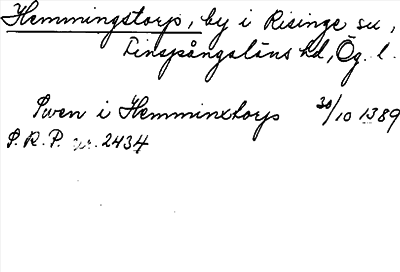 Hemmingstorp, by i Risinge sn,
Finspångaläns hd, Ög. l.
Swen i Hemminxtorp 30/10 1389
S.R.P. nr. 2434